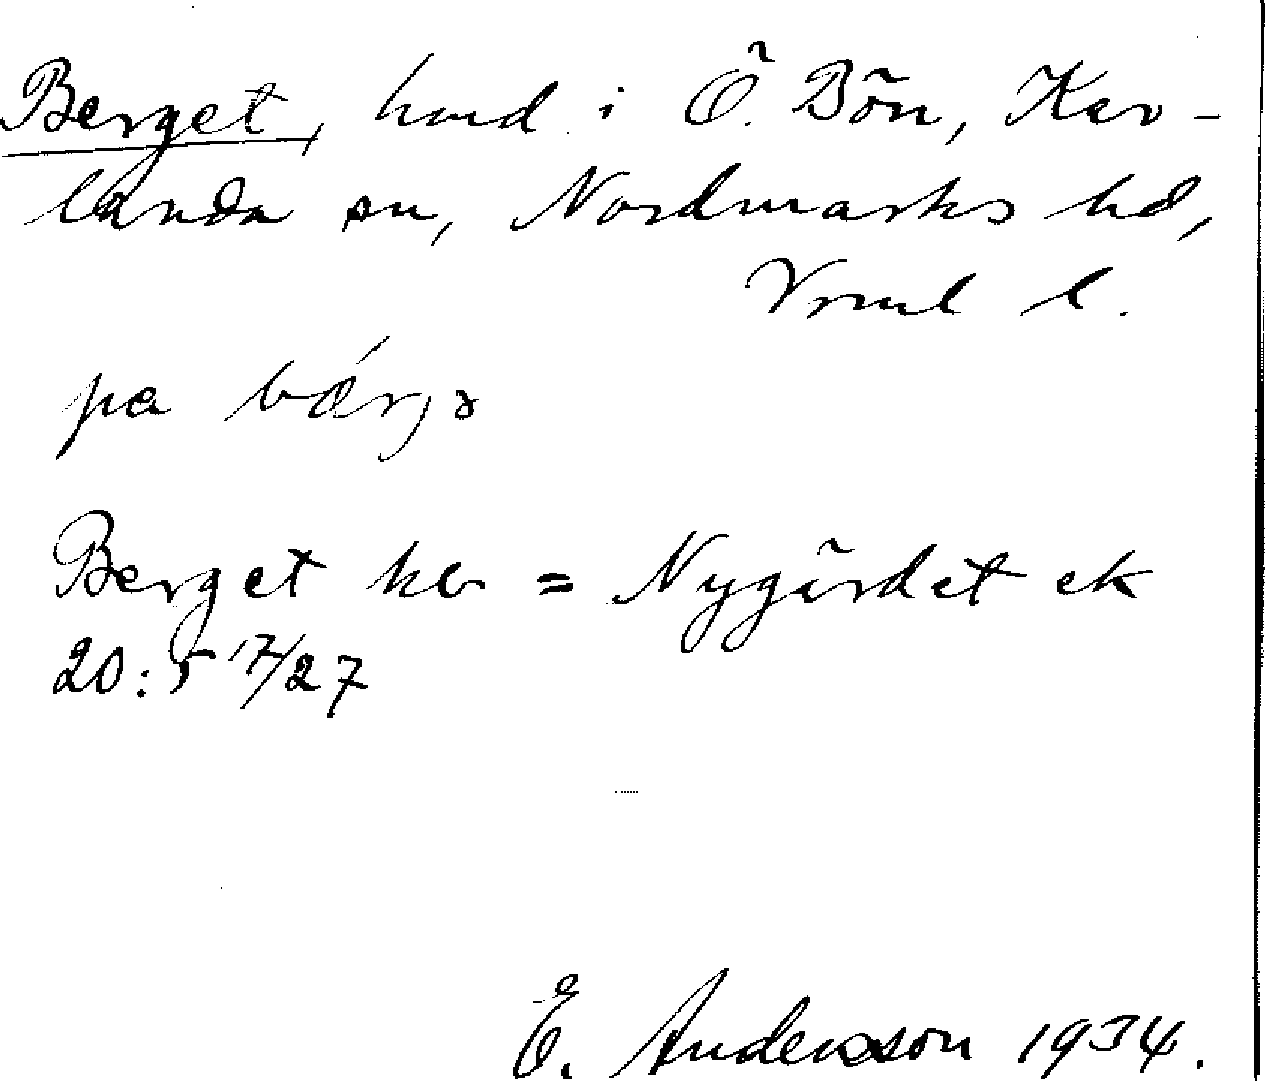 Berget, hmd. i Ö. Bön, Kar-
landa sn, Nordmarks hd,
Vrml l.
pa bǽrjə
Berget kb = Nygärdet ek
20:5 17/27
E. Andersson 1934.